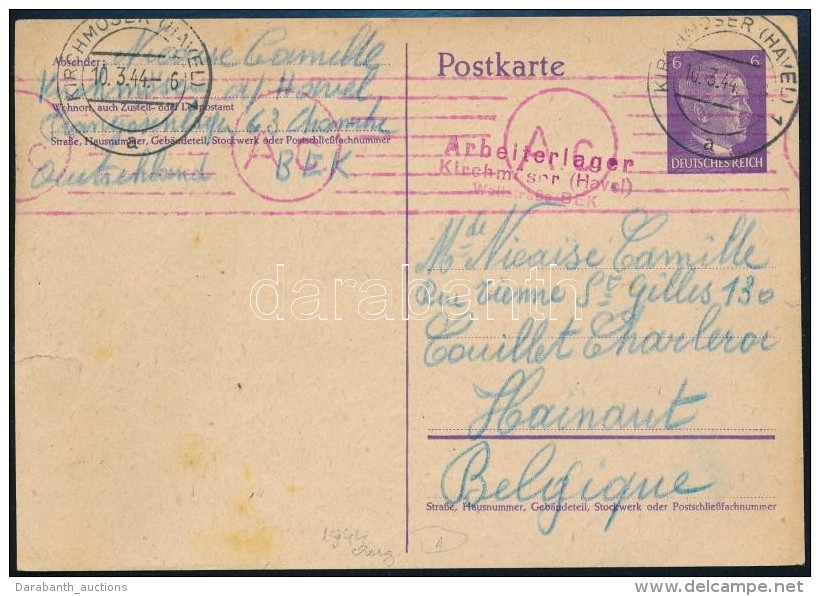 KIRCHMÖSER (HAVEL) 1
10.3.44.- 6
a
Absender: Nicaise Camille
Kirchmöser a/ Havel
Wohnort, auch Zustell- oder Leitpostamt
63
Straße, Hausnummer, Gebäudeteil, Stockwerk oder Postschließfachnummer
Deutschland BEK
Postkarte
KIRCHMÖSER (HAVEL) 1
10.3.44.
a
6 6
DEUTSCHES REICH
Arbeiterlager
Kirchmöser (Havel)
Wallstraße BEK
Mde Nicaise Camille
Rue Vienne St Gilles 130
Couillet Charleroi
Hainaut
Belgique
Straße, Hausnummer, Gebäudeteil, Stockwerk oder Postschließfachnummer
darabanth
1944
Darabanth_auctions